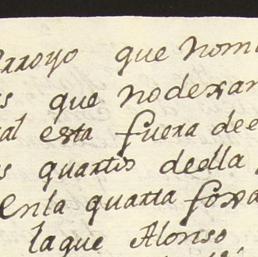 Arroyo que nom
s que nodexan
al esta fuera dee
s quartis deella
enla quarta foxa
laque Alonso